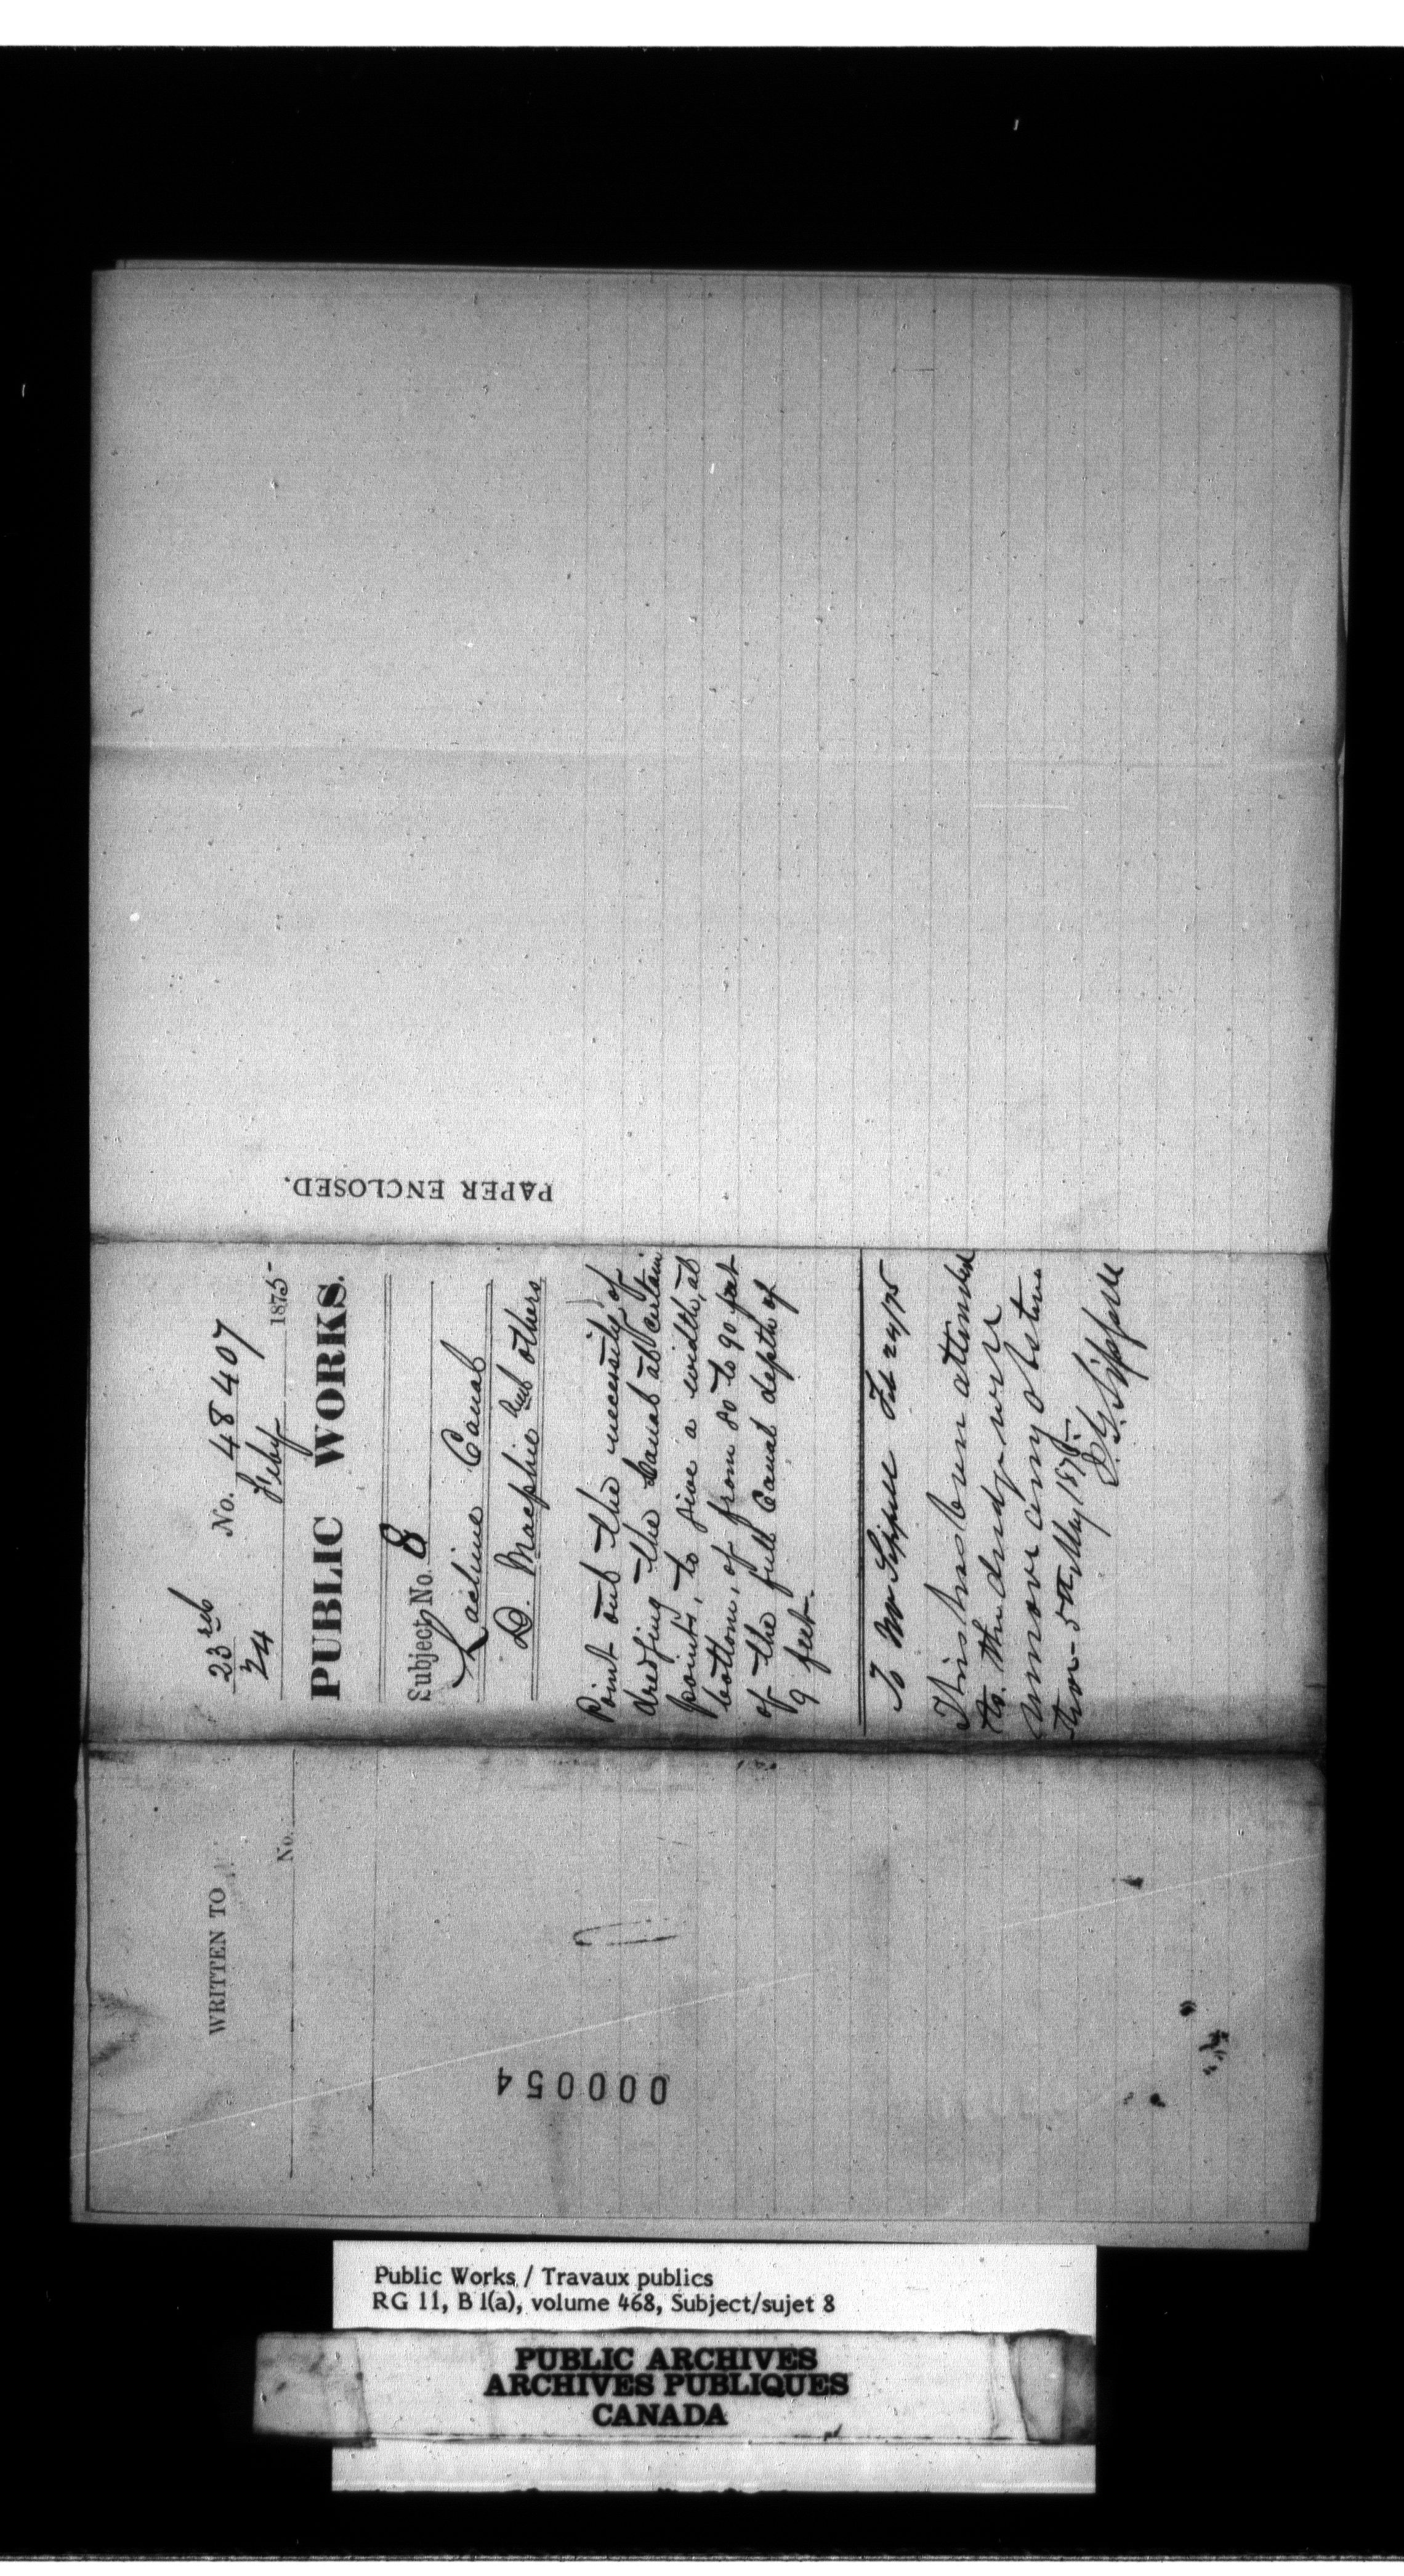 PAPER ENCLOSED.
23 Feb
24
No. 48407
Feby 1875
PUBLIC WORKS.
Subject No. 8
Lachine Canal
D. Macphie and others
Point out the necessity of
dredging the Canal at certain
points, to give a width, at
bottom, of from 80 to 90 feet
of the full Canal depth of
9 feet.
To Mr Sippell Feb 24/75
This has been attended
to. The dredge will
remove any obstruc
tion - 5th May 1875.
J.G. Sippell
WRITTEN TO
No.
000054
Public Works / Travaux publics
RG 11, B 1(a), volume 468, Subject/sujet 8
PUBLIC ARCHIVES
ARCHIVES PUBLIQUES
CANADA